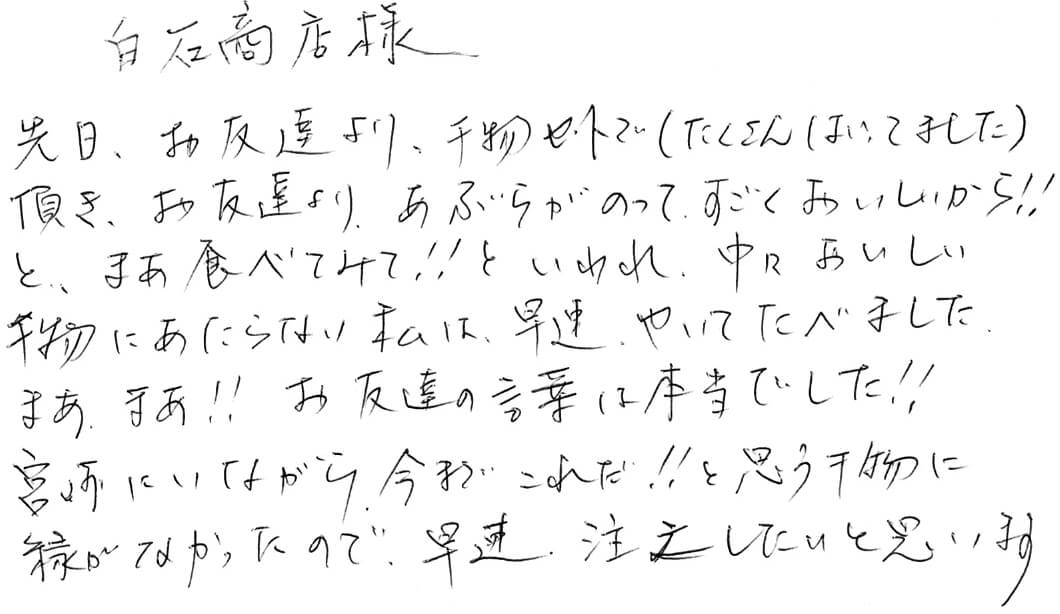 白石商店様
先日、お友達より、干物セットで(たくさんはいってました)
頂き、お友達より、あぶらがのって、すごくおいしいから!!
と、まあ食べてみて!!といわれ、中々おいしい
干物にあたらない私は、早速、やいてたべました。
まあ、まあ!!お友達の言葉は本当でした!!
宮崎にいながら、今まで これだ!!と思う干物に
縁がなかったので、早速、注文したいと思います